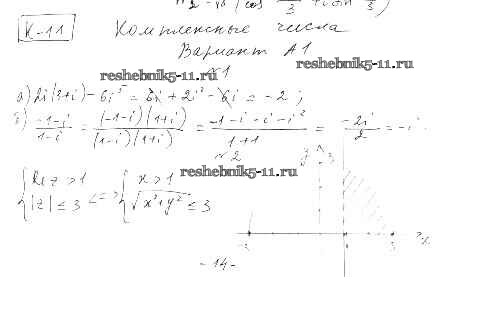 К-11
Комплексные числа
Вариант А1
№1
reshebnik5-11.ru
а) 2i(3+i) - 6i⁵ = 6i + 2i² - 6i = -2;
б) (-1-i)/(1-i) = ((-1-i)(1+i))/((1-i)(1+i)) = (-1-i-i-i²)/(1+1) = -2i/2 = -i.
№2
reshebnik5-11.ru
{ Re z > 1 <=> { x > 1
|z| ≤ 3 √(x²+y²) ≤ 3
y 3
3 x
-14-